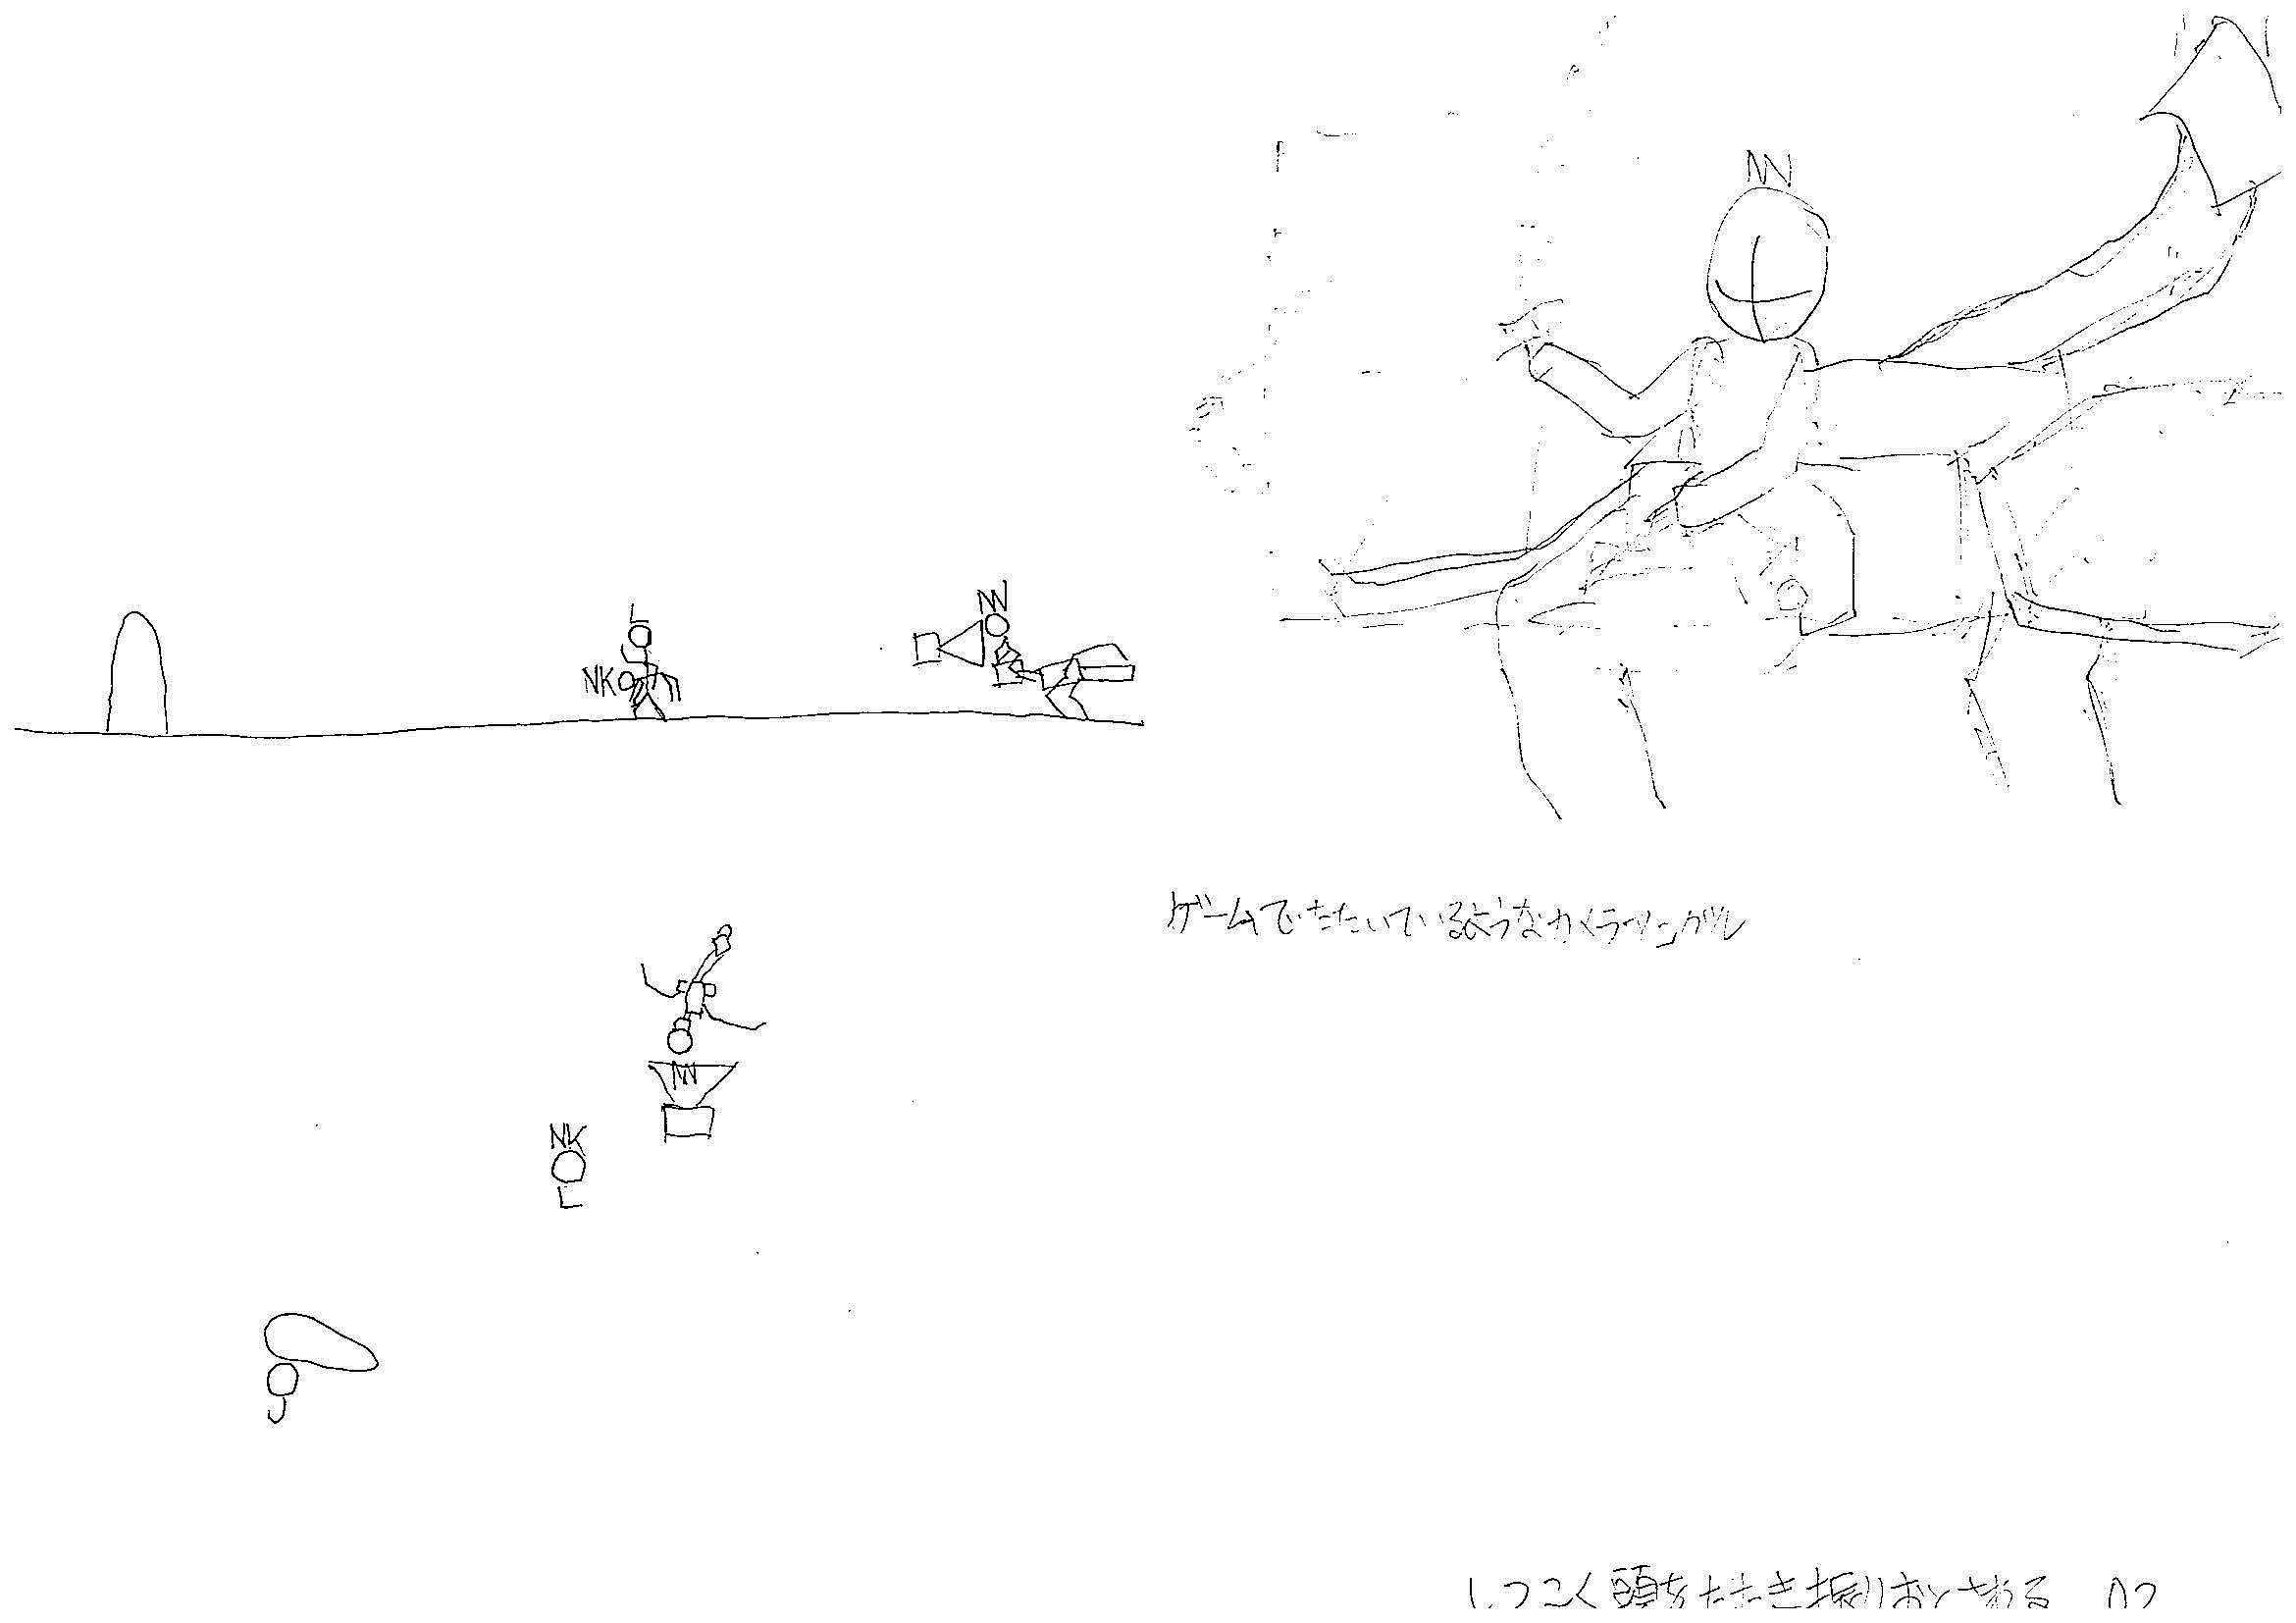 NN
L
NK
NN
ゲームでたたいているようなカメラアングル
NN
NK
L
J
しつこく頭をたたき振りおとされる 02